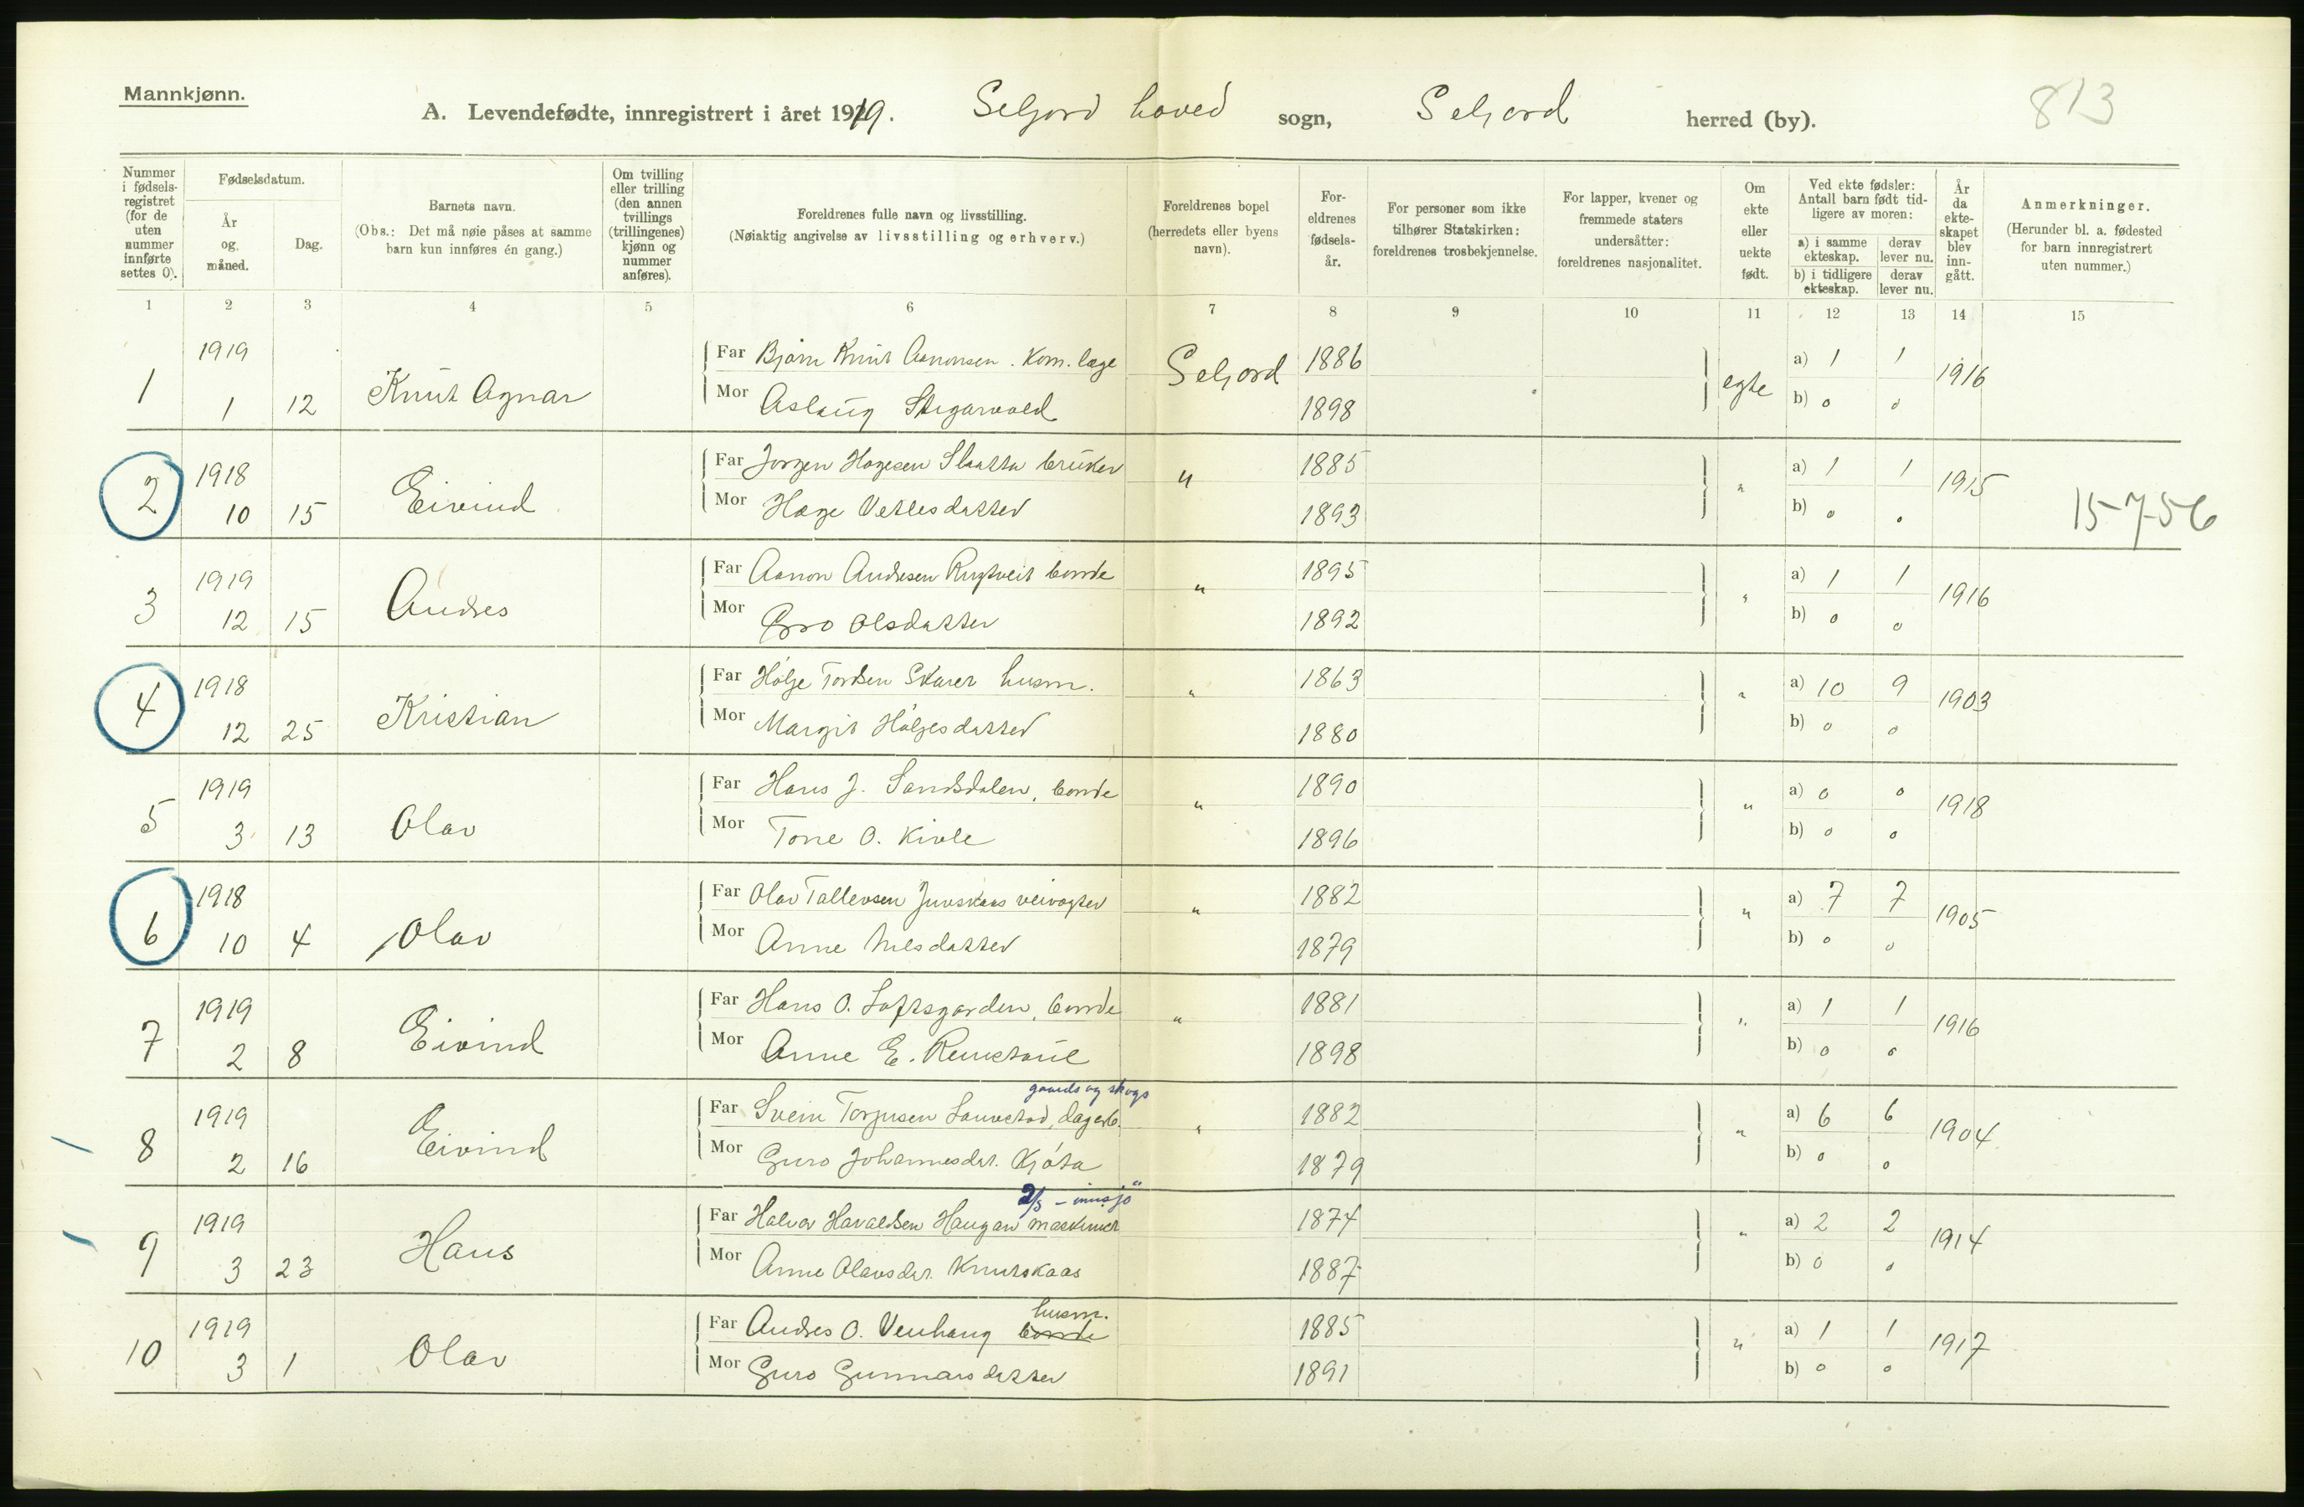 Mannkjønn.
A. Levendefødte, innregistrert i året 1919. Seljord hoved sogn, Seljord herred (by).
813
Nummer i fødsels-registret (for de uten nummer innførte settes 0).
Fødselsdatum.
År og måned.
Dag.
Barnets navn.
(Obs.: Det må nøie påses at samme barn kun innføres én gang.)
Om tvilling eller trilling (den annen tvillings (trillingenes) kjønn og nummer anføres).
Foreldrenes fulle navn og livsstilling.
(Nøiaktig angivelse av livsstilling og erhverv.)
Foreldrenes bopel (herredets eller byens navn).
For-eldrenes fødsels-år.
For personer som ikke tilhører Statskirken: foreldrenes trosbekjennelse.
For lapper, kvener og fremmede staters undersåtter: foreldrenes nasjonalitet.
Om ekte eller uekte født.
Ved ekte fødsler: Antall barn født tid-ligere av moren:
a) i samme ekteskap.
derav lever nu.
b) i tidligere ekteskap.
derav lever nu.
År da ekte-skapet blev inn-gått.
Anmerkninger.
(Herunder bl. a. fødested for barn innregistrert uten nummer.)
1 2 3 4 5 6 7 8 9 10 11 12 13 14 15
1 1919 1 12 Knut Agnar Far Bjørn Knut Aanonsen. Kom. læge Seljord 1886 egte a) 1 1 1916
Mor Aslaug 1898 b) 0 0
2 1918 10 15 Eivind Far Jorgen Hogesen Slaatta bruker " 1885 " a) 1 1 1915
Mor Hæge Vetlesdatter 1893 b) 0 0
15-7-56
3 1919 12 15 Andres Far Aanon Andresen Rugtveit bonde " 1895 " a) 1 1 1916
Mor Gro Olsdatter 1892 b) 0 0
4 1918 12 25 Kristian Far Hølje Tordsen Skarer husm. " 1863 " a) 10 9 1903
Mor Margit Høljesdatter 1880 b) 0 0
5 1919 3 13 Olav Far Hans J. Sandsdalen, bonde " 1890 " a) 0 0 1918
Mor Tone O. Kivle 1896 b) 0 0
6 1918 10 4 Olav Far Olav Tallevsen Juvskaas veivogter " 1882 " a) 7 7 1905
Mor Anne Nilsdatter 1879 b) 0 0
7 1919 2 8 Eivind Far Hans O. Loftsgarden, bonde " 1881 " a) 1 1 1916
Mor Anne E. 1898 b) 0 0
gaards og skogs
8 1919 2 16 Eivind Far Svein Torjusen dagarb. " 1882 " a) 6 6 1904
Mor Guro Johannesdat. Kjøta 1879 b) 0 0
9 1919 3 23 Hans Far Halvor Havaldsen Haugan maskinist 1874 " a) 2 2 1914
Mor Anne Olavsdat. Knutskaas 1887 b) 0 0
husm.
10 1919 3 1 Olav Far Andres O. Venhaug bonde 1885 " a) 1 1 1917
Mor Guro Gunnarsdatter 1891 b) 0 0